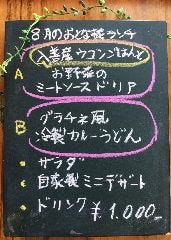 8月のおとな被ランチ
A
八美産ウコンごはんと
お野菜の
ミートソースドリア
B
グラチネ風
冷製カレーうどん
サラダ
自家製ミニデザート
ドリンク ¥1.000